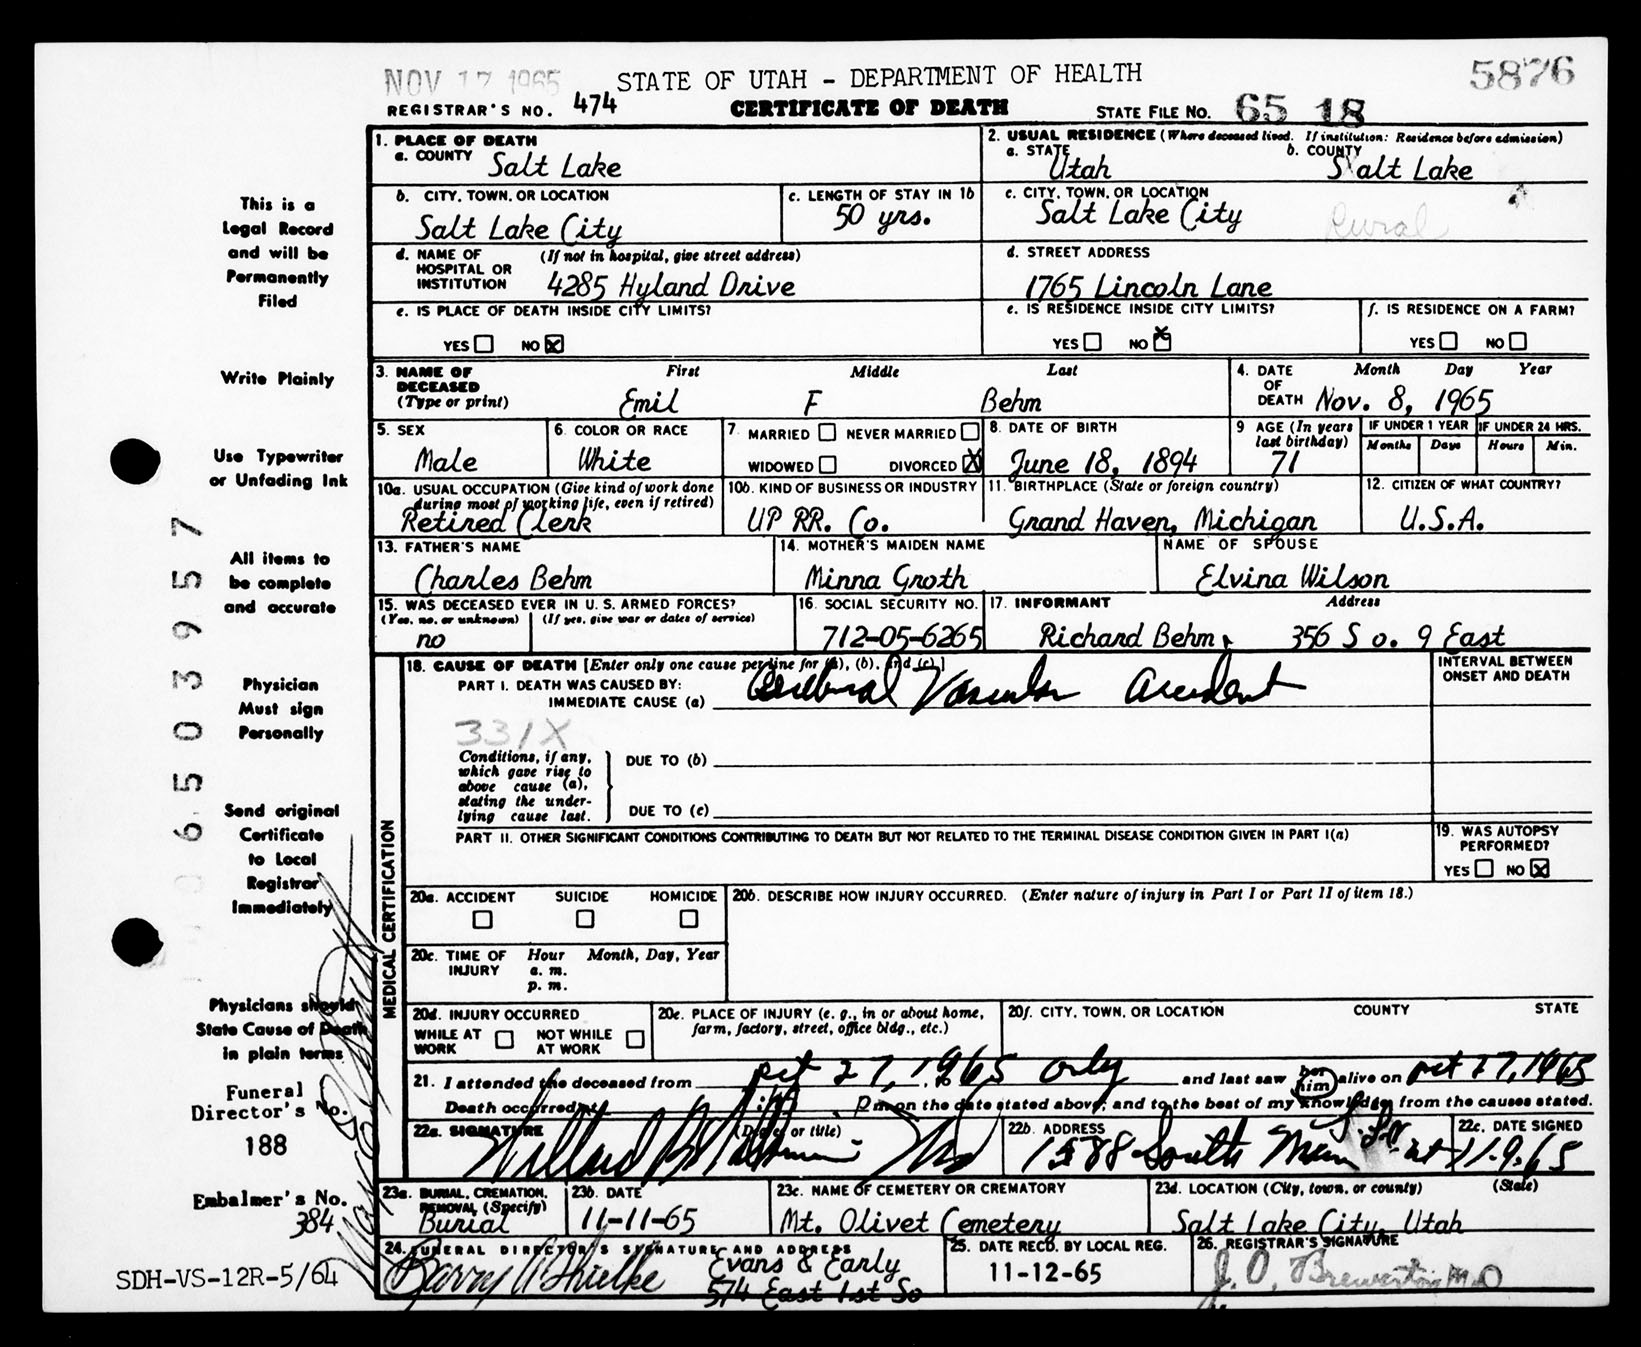 NOV 17 1965 STATE OF UTAH - DEPARTMENT OF HEALTH 5876
REGISTRAR'S NO. 474 CERTIFICATE OF DEATH STATE FILE NO. 65 18
This is a
Legal Record
and will be
Permanently
Filed
Write Plainly
Use Typewriter
or Unfading Ink
All items to
be complete
and accurate
Physician
Must sign
Personally
Send original
Certificate
to Local
Registrar
Immediately
Physicians should
State Cause of Death
in plain terms
Funeral
Director's No.
188
Embalmer's No.
384
SDH-VS-12R-5/64
6503957
1. PLACE OF DEATH
a. COUNTY Salt Lake
2. USUAL RESIDENCE (Where deceased lived. If institution: Residence before admission)
a. STATE Utah b. COUNTY Salt Lake
b. CITY, TOWN, OR LOCATION Salt Lake City
c. LENGTH OF STAY IN 1b 50 yrs.
c. CITY, TOWN, OR LOCATION Salt Lake City Rural
d. NAME OF (If not in hospital, give street address)
HOSPITAL OR
INSTITUTION 4285 Hyland Drive
d. STREET ADDRESS
1765 Lincoln Lane
e. IS PLACE OF DEATH INSIDE CITY LIMITS?
YES NO X
e. IS RESIDENCE INSIDE CITY LIMITS?
YES NO X
f. IS RESIDENCE ON A FARM?
YES NO
3. NAME OF First Middle Last
DECEASED
(Type or print) Emil F Behm
4. DATE Month Day Year
OF
DEATH Nov. 8, 1965
5. SEX
Male
6. COLOR OR RACE
White
7. MARRIED NEVER MARRIED
WIDOWED DIVORCED X
8. DATE OF BIRTH
June 18, 1894
9 AGE (In years
last birthday)
71
IF UNDER 1 YEAR
Months Days
IF UNDER 24 HRS.
Hours Min.
10a. USUAL OCCUPATION (Give kind of work done
during most of working life, even if retired)
Retired Clerk
10b. KIND OF BUSINESS OR INDUSTRY
UP RR. Co.
11. BIRTHPLACE (State or foreign country)
Grand Haven, Michigan
12. CITIZEN OF WHAT COUNTRY?
U.S.A.
13. FATHER'S NAME
Charles Behm
14. MOTHER'S MAIDEN NAME
Minna Groth
NAME OF SPOUSE
Elvina Wilson
15. WAS DECEASED EVER IN U. S. ARMED FORCES?
(Yes, no, or unknown) (If yes, give war or dates of service)
no
16. SOCIAL SECURITY NO.
712-05-6265
17. INFORMANT Address
Richard Behm, 356 So. 9 East
MEDICAL CERTIFICATION
18. CAUSE OF DEATH [Enter only one cause per line for (a), (b), and (c).]
PART I. DEATH WAS CAUSED BY:
IMMEDIATE CAUSE (a) Cerebral Vascular Accident
INTERVAL BETWEEN
ONSET AND DEATH
331X
Conditions, if any,
which gave rise to
above cause (a),
stating the under-
lying cause last.
DUE TO (b)
DUE TO (c)
PART II. OTHER SIGNIFICANT CONDITIONS CONTRIBUTING TO DEATH BUT NOT RELATED TO THE TERMINAL DISEASE CONDITION GIVEN IN PART I(a)
19. WAS AUTOPSY
PERFORMED?
YES NO X
20a. ACCIDENT SUICIDE HOMICIDE
20b. DESCRIBE HOW INJURY OCCURRED. (Enter nature of injury in Part I or Part II of item 18.)
20c. TIME OF Hour Month, Day, Year
INJURY a. m.
p. m.
20d. INJURY OCCURRED
WHILE AT NOT WHILE
WORK AT WORK
20e. PLACE OF INJURY (e. g., in or about home,
farm, factory, street, office bldg., etc.)
20f. CITY, TOWN, OR LOCATION COUNTY STATE
21. I attended the deceased from Oct 27, 1965 only and last saw her him alive on Oct 27, 1965
Death occurred at P m on the date stated above; and to the best of my knowledge, from the causes stated.
22a. SIGNATURE (Degree or title)
Willard MD
22b. ADDRESS
1588 South Main
22c. DATE SIGNED
11.9.65
23a. BURIAL, CREMATION,
REMOVAL (Specify)
Burial
23b. DATE
11-11-65
23c. NAME OF CEMETERY OR CREMATORY
Mt. Olivet Cemetery
23d. LOCATION (City, town, or county) (State)
Salt Lake City, Utah
24. FUNERAL DIRECTOR'S SIGNATURE AND ADDRESS
Evans & Early
574 East 1st So
25. DATE RECD. BY LOCAL REG.
11-12-65
26. REGISTRAR'S SIGNATURE
J. O. Brewerton MD